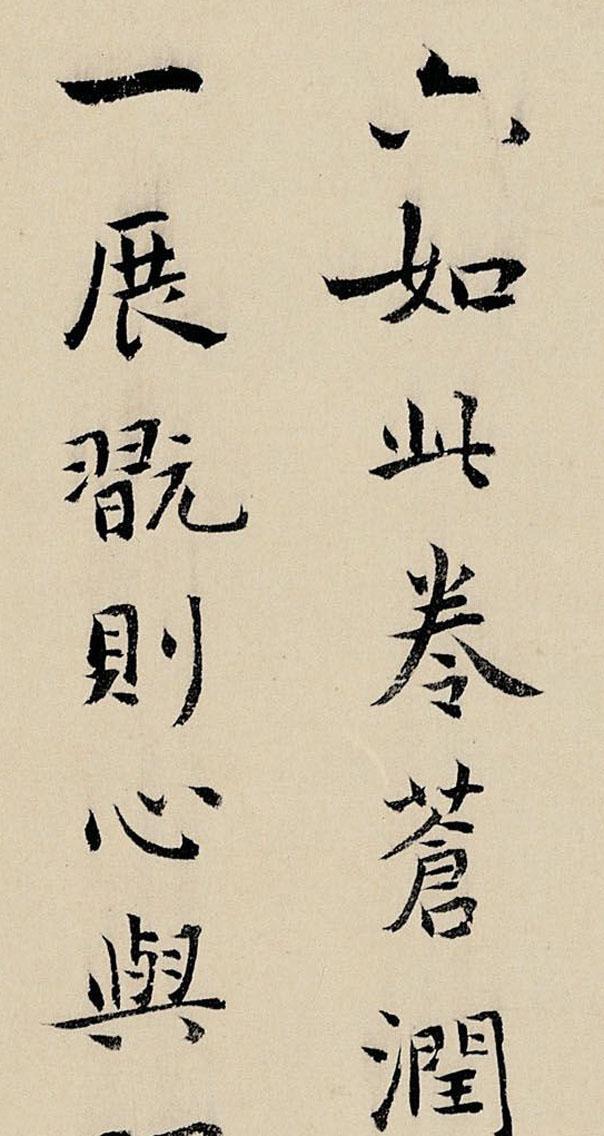 六如此卷蒼潤
一展翫則心與